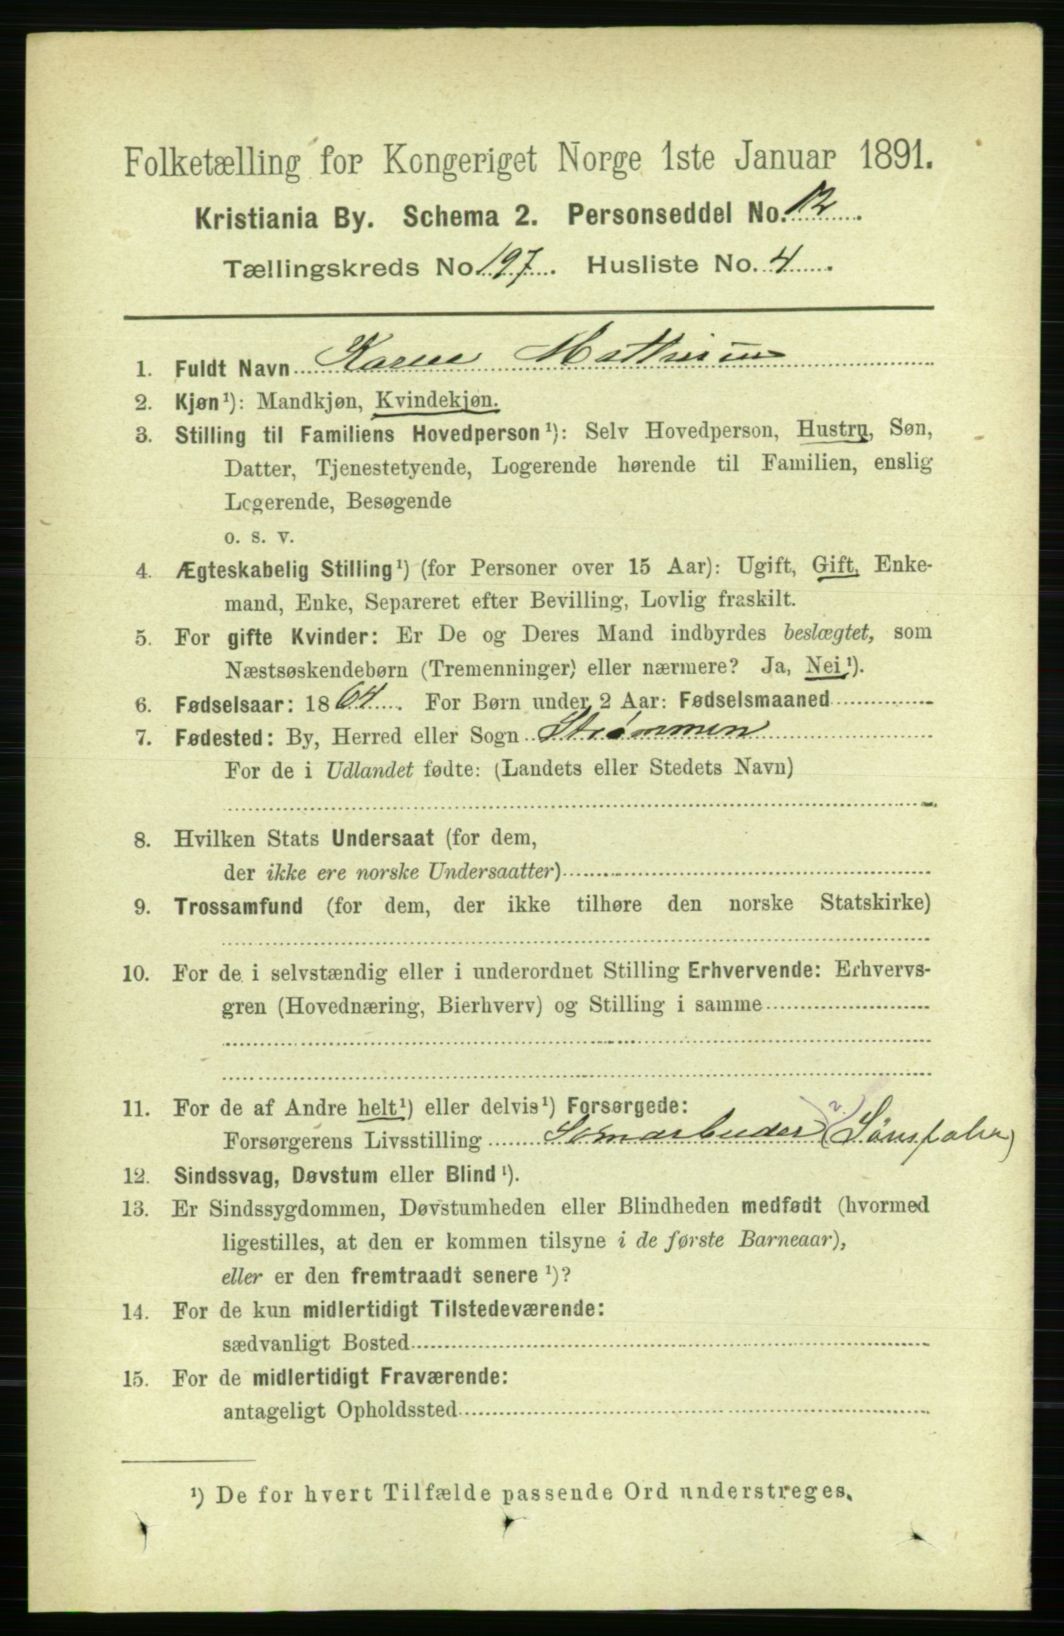 Folketælling for Kongeriget Norge 1ste Januar 1891.
Kristiania By. Schema 2. Personseddel No. 12.
Tællingskreds No 197. Husliste No. 4.
1. Fuldt Navn Karen Mathisen
2. Kjøn¹): Mandkjøn, Kvindekjøn.
3. Stilling til Familiens Hovedperson¹): Selv Hovedperson, Hustru, Søn,
Datter, Tjenestetyende, Logerende hørende til Familien, enslig
Logerende, Besøgende
o. s. v.
4. Ægteskabelig Stilling¹) (for Personer over 15 Aar): Ugift, Gift, Enke-
mand, Enke, Separeret efter Bevilling, Lovlig fraskilt.
5. For gifte Kvinder: Er De og Deres Mand indbyrdes beslægtet, som
Næstsøskendebørn (Tremenninger) eller nærmere? Ja, Nei¹).
6. Fødselsaar: 1864. For Børn under 2 Aar: Fødselsmaaned
7. Fødested: By, Herred eller Sogn Strømmen
For de i Udlandet fødte: (Landets eller Stedets Navn)
8. Hvilken Stats Undersaat (for dem,
der ikke ere norske Undersaatter)
9. Trossamfund (for dem, der ikke tilhøre den norske Statskirke)
10. For de i selvstændig eller i underordnet Stilling Erhvervende: Erhvervs-
gren (Hovednæring, Bierhverv) og Stilling i samme
11. For de af Andre helt¹) eller delvis¹) Forsørgede:
Forsørgerens Livsstilling
12. Sindssvag, Døvstum eller Blind¹).
13. Er Sindssygdommen, Døvstumheden eller Blindheden medfødt (hvormed
ligestilles, at den er kommen tilsyne i de første Barneaar),
eller er den fremtraadt senere¹)?
14. For de kun midlertidigt Tilstedeværende:
sædvanligt Bosted
15. For de midlertidigt Fraværende:
antageligt Opholdssted
¹) De for hvert Tilfælde passende Ord understreges.